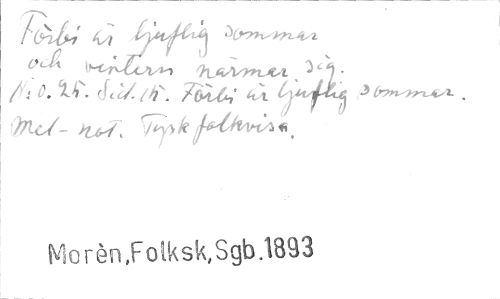 Förbi är ljuflig sommar
och vintern närmar sig.
N:o. 25. Sid. 15. Förbi är ljuflig sommar.
Mel-not. Tysk folkvisa.
Morèn,Folksk,Sgb.1893